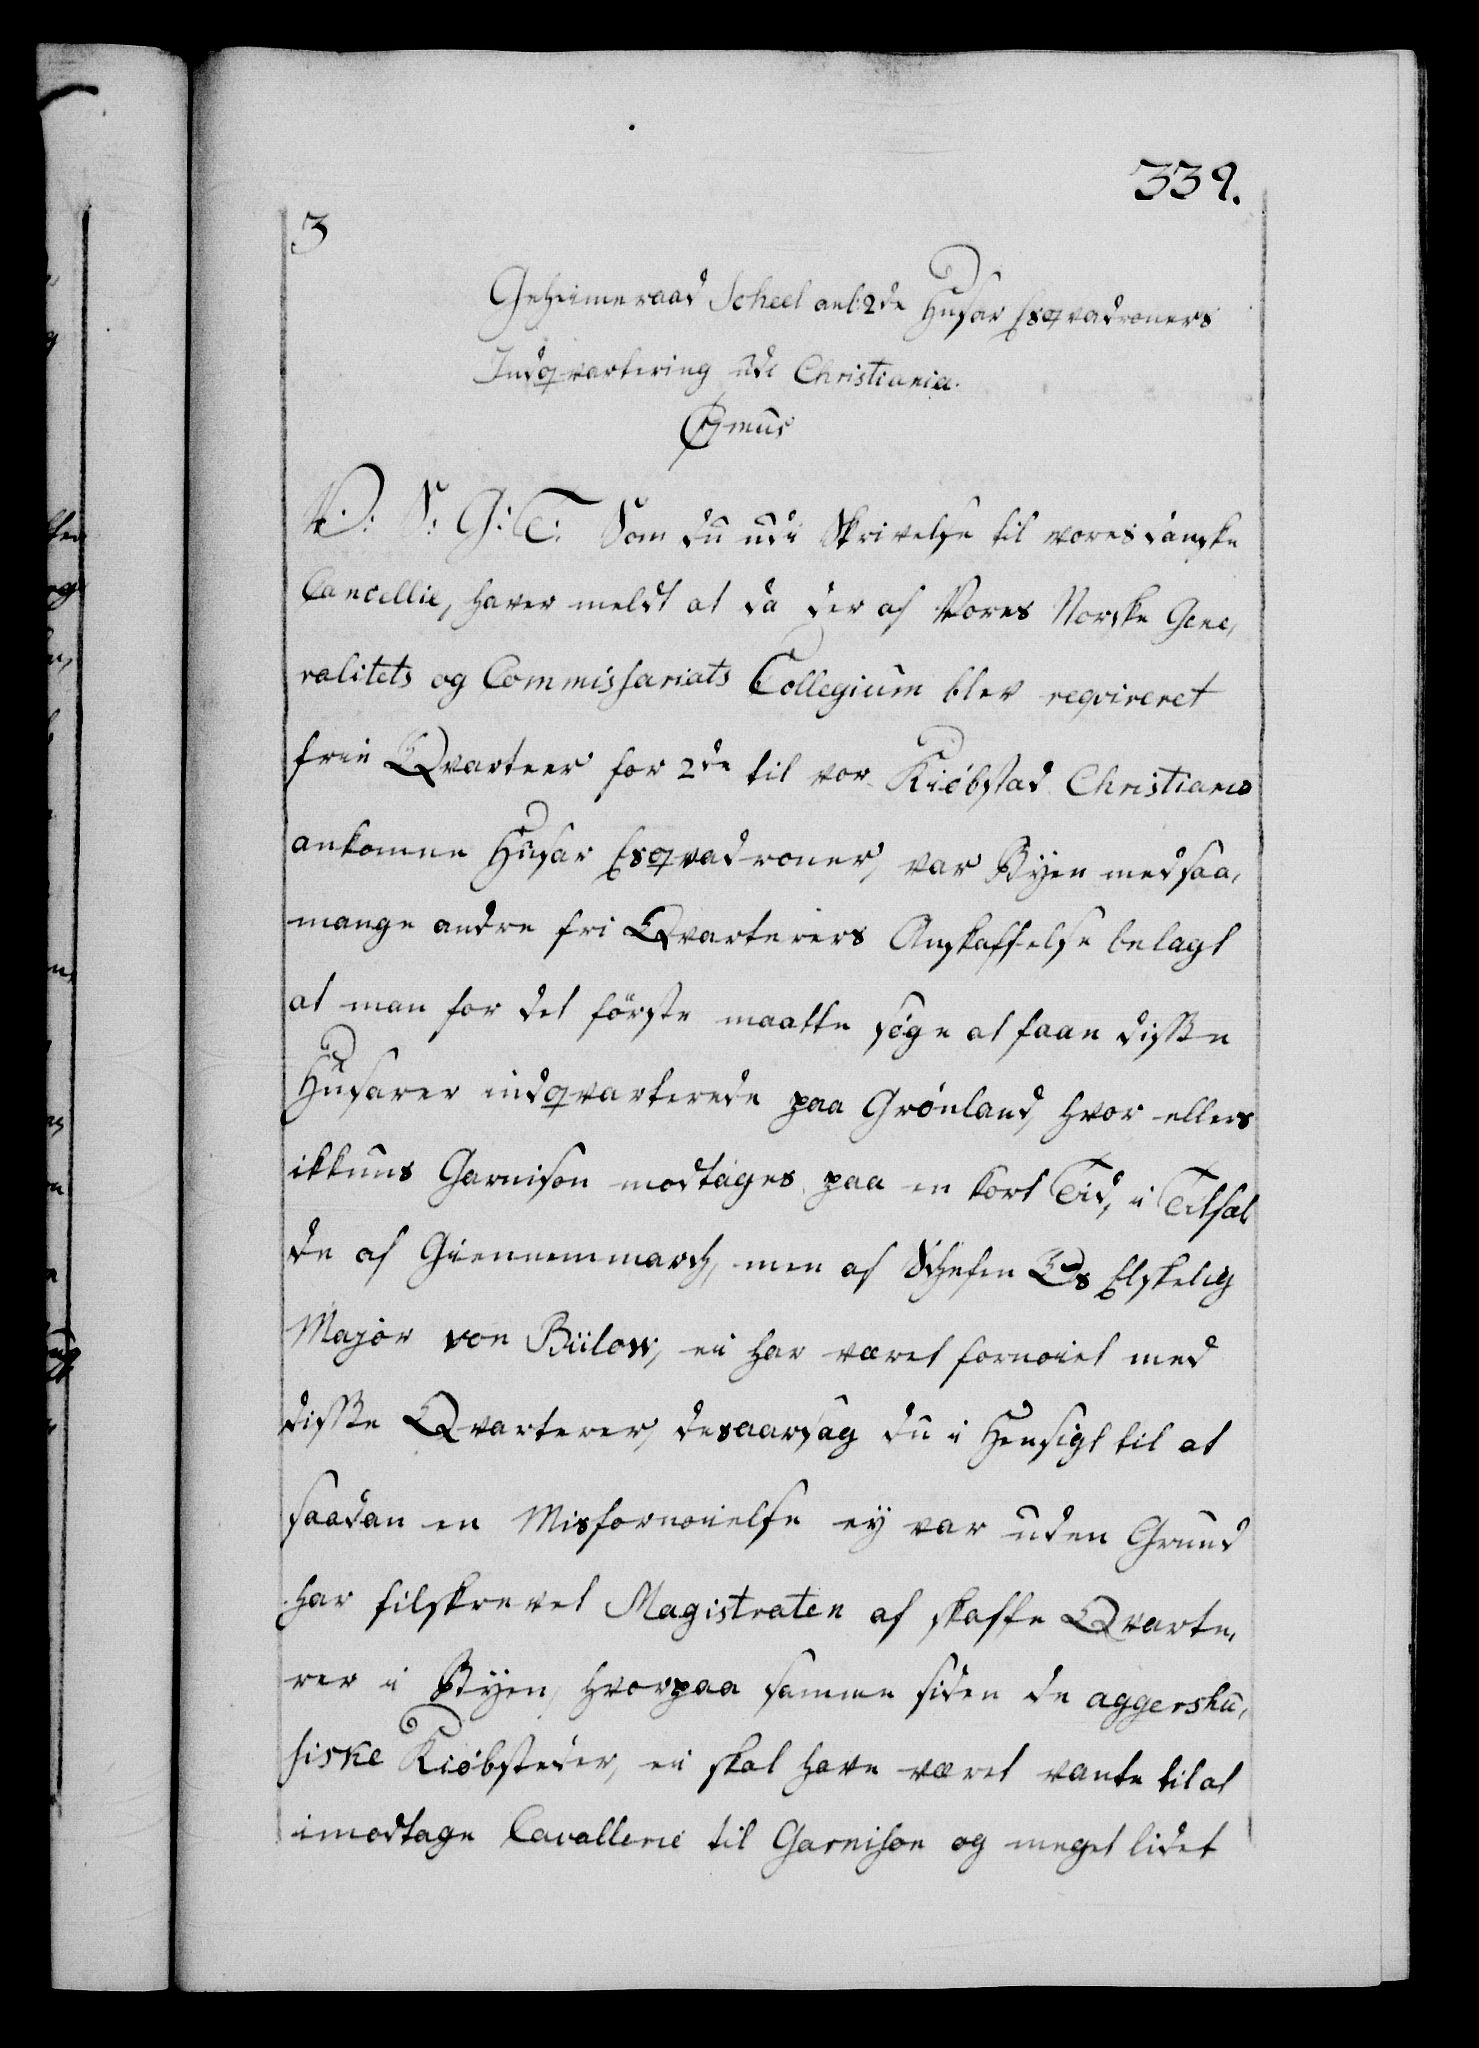 339.
3
Geheimeraad Scheel anl: 2de Husar Esqvadroners
Indqvartering udi Christiania.
V: S: G: T: Som du udi Skrivelse til vores danske
Cancellie, haver meldt at da der af Vores Norske Gene,
ralitets og Commissariats Collegium blev reqvireret
frie Qvarteer for 2de til vor Kiöbstad Christiania
ankomne Husar Esqvadroner, var Byen med saa,
mange andre fri Qvarterers Anskaffelse belagt
at man for det förste maatte söge at faae disse
Husarer indqvarterede paa Grönland, hvor ellers
ikkuns Garnison modtages paa en kort Tid, i Tilfæl
de af Giennemmarch, men af Chefen Os Elskelig
Major von Bülow, ei har været fornöiet med
disse Qvarterer, desaarsag du i Hensigt til at
saadan en Misfornöielse ey var uden Grund
har tilskrevet Magistraten at skaffe Qvarte,
rer i Byen, hvorpaa samme siden de aggershu,
siske Kiöbsteder, ei skal have været vante til at
imodtage Cavallerie til Garnison og meget lidet